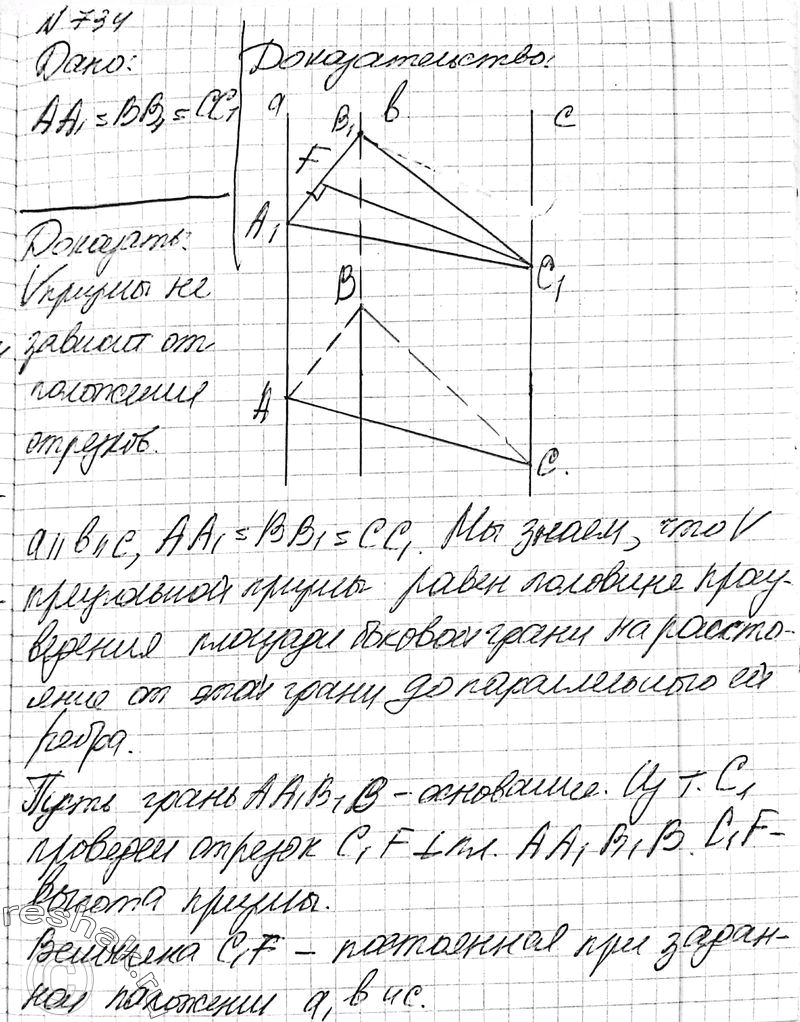 N 734
Дано:
AA₁ = BB₁ = CC₁
Доказать:
V призмы не
зависит от
положения
отрезков.
Доказательство:
a B₁ в c
F
A₁
C₁
B
A
C.
a || в || c, AA₁ = BB₁ = CC₁. Мы знаем, что V
треугольной призмы равен половине произ-
ведения площади боковой грани на рассто-
яние от этой грани до параллельного ей
ребра.
Пусть грань AA₁B₁B – основание. Из т. C₁
проведем отрезок C₁F ⊥ пл. AA₁B₁B. C₁F –
высота призмы.
Величина C₁F – постоянная при задан-
ном положении a, в и c.
reshak.ru
©